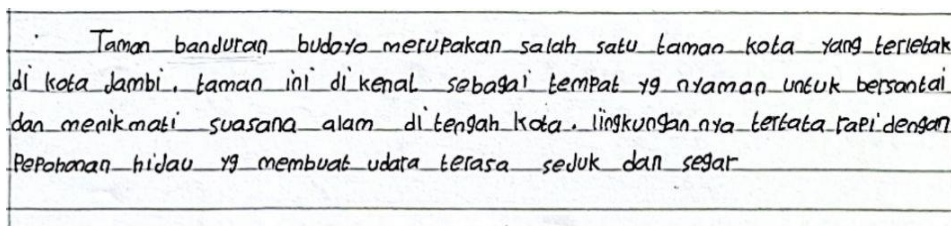 Taman banduran budoyo merupakan salah satu taman kota yang terletak
di kota Jambi. taman ini di kenal sebagai tempat yg nyaman untuk bersantai
dan menikmati suasana alam di tengah kota. lingkungan nya tertata rapi dengan
Pepohonan hidau yg membuat udara terasa seduk dan segar